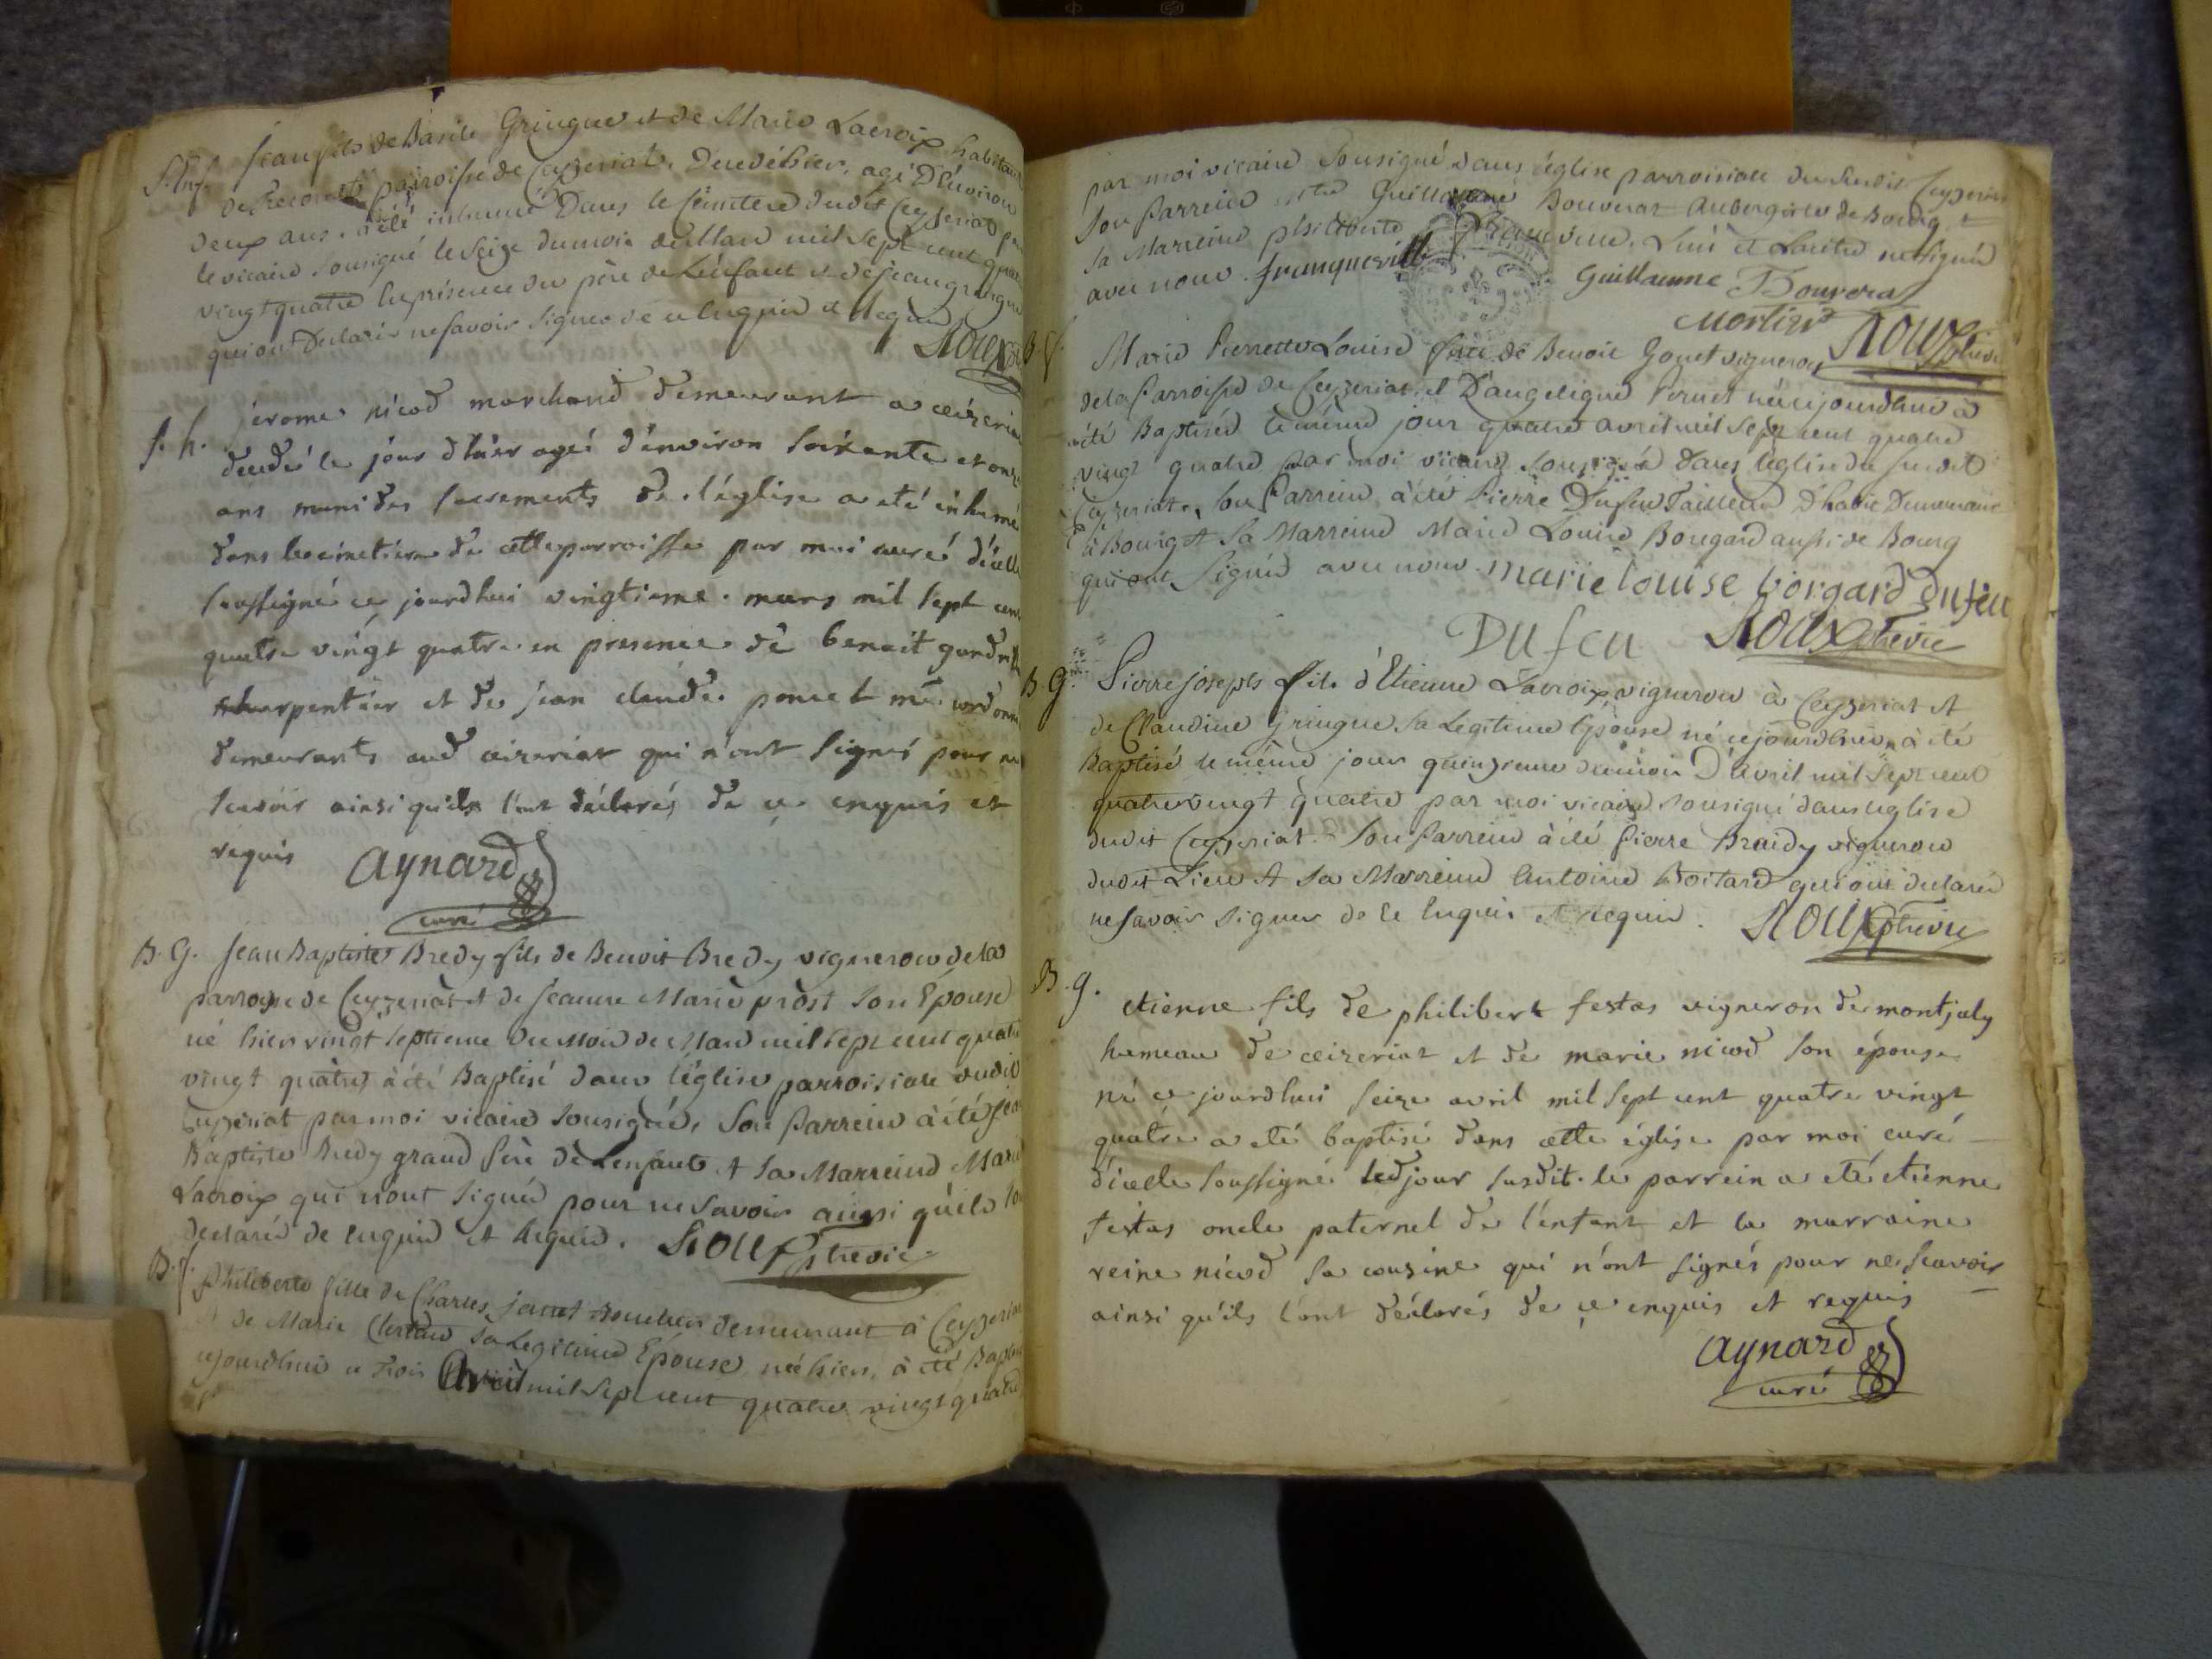 S. Enf. Jean fils de Basile Gringue et de Marie Lacroix habitans
parroisse de Ceyzeriat, decedé hier, agé D'environ
deux ans, a été inhumé Dans le Cimitere dudit Ceyzeriat par
le vicaire sousigné le seize du mois de Mars mil sept cent quatre
vingt quatre En présence du père de L'enfant et de jean gringue
qui ont Declarés ne savoir signer de ce Enquis et Requis
Roux
S. h. jerome nicod marchand demeurant a ceizeriat
decedé le jour d'hier agé d'environ soixante et onze
ans muni des sacrements de l'église a eté inhumé
dans le cimetiere de cette parroisse par moi curé d'icelle
soussigné ce jourdhui vingtieme mars mil sept cent
quatre vingt quatre en presence de benoit
charpentier et de jean claude poncet me cordonnier
demeurants aud ceizeriat qui n'ont signés pour ne
scavoir ainsi qu'ils l'ont déclarés de ce enquis et
requis Aynard
curé
B. G. Jean Baptiste Bredy fils de Benoit Bredy vigneron de la
parroisse de Ceyzeriat et de Jeanne Marie pròst son Epouse
né hier vingt septieme du Mois de Mars mil sept cent quatre
vingt quatre, à été Baptisé dans l'église parroissiale dudit
Ceyzeriat par moi vicaire sousigné, Son Parrein à été Jean
Baptiste Bredy grand Père de Lenfant et sa Marreine Marie
Lacroix qui n'ont signés pour ne savoir ainsi qu'ils l'ont
declarés de enquis et Requis. Roux ptre vic
B. f. Philiberte fille de Charles janet demeurant à Ceyzeriat
et de Marie sa Legitime Epouse, née hier, à été Baptisée
cejourdhui ce trois Avril mil sept cent quatre vingt quatre
par moi vicaire Sousigné dans l'église parroissiale du susdit Ceyzeriat
son Parrein Guillaume Bouverat Aubergiste de Bourg, et
sa Marreine philiberte L'un et L'autre ne signés
avec nous. franqueville Guillaume Bouverat
Mortier Roux ptre vic
B. f. Marie Pierrette Louise fille de Benoit Gonet vigneron
de la Parroisse de Ceyzeriat et D'angelique Pernet née cejourdhui à
été Baptisée le même jour quatre avril mil sept cent quatre
vingt quatre par moi vicaire sousigné dans l'église du susdit
Ceyzeriat, son Parrein à été Pierre Dufeu Tailleur D'habit Demeurant
à Bourg et sa Marreine Marie Louise Boregard aussi de Bourg
qui ont signés avec nous. marie louise borgard dufeu
Dufeu Roux ptre vic
B. G. Pierre joseph fils d'Etienne Lacroix vigneron à Ceyzeriat et
de Claudine Gringue sa Legitime Epouse né cejourdhui, à été
Baptisé le même jour quinzieme du mois D'avril mil sept cent
quatre vingt quatre par moi vicaire sousigné dans l'église
dudit Ceyzeriat. Son Parrein à été Pierre Braidy vigneron
dudit Lieu et sa Marreine Antoine Boitard qui ont declarés
ne savoir signer de ce Enquis et Requis. Roux ptre vic
B. g. etienne fils de philibert festas vigneron de montjuly
hameau de ceizeriat et de marie nicod son épouse
né ce jourdhui seize avril mil sept cent quatre vingt
quatre a eté baptisé dans cette église par moi curé
d'icelle soussigné led jour susdit. le parrein a eté etienne
festas oncle paternel de l'enfant et la marraine
reine nicod sa cousine qui n'ont signés pour ne scavoir
ainsi qu'ils l'ont déclarés de ce enquis et requis
Aynard
curé